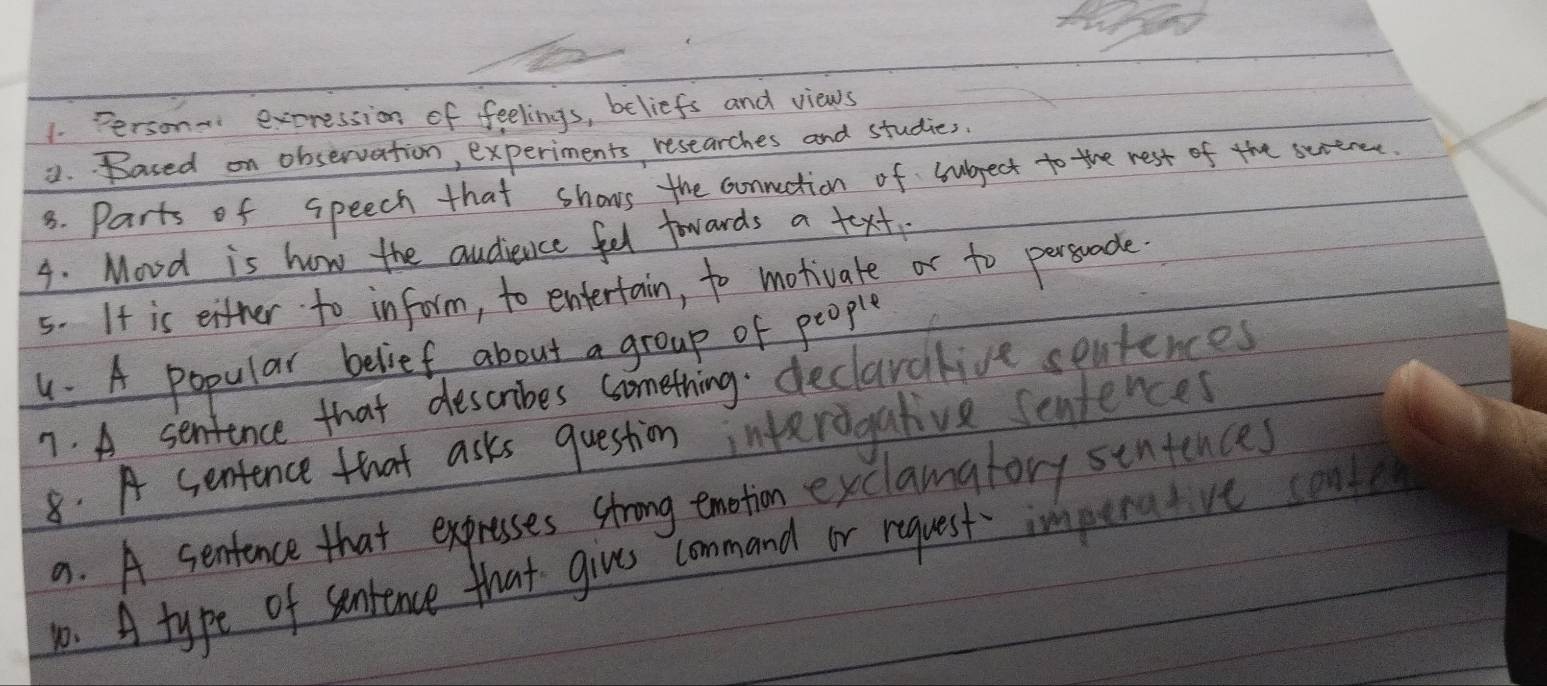 1. Personal expression of feelings, beliefs and views
2. Based on observation, experiments, researches and studies.
3. Parts of speech that shows the connection of subject to the rest of the sentence.
4. Mood is how the audience feel towards a text.
5. It is either to inform, to entertain, to motivate or to persuade.
6. A popular belief about a group of people
7. A sentence that describes something. declarative sentences
8. A sentence that asks question interogative sentences
9. A sentence that expresses strong emotion exclamatory sentences
10. A type of sentence that gives command or request. imperative